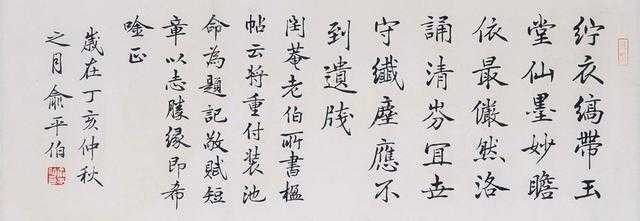 紵衣縞帶玉
堂仙墨妙瞻
依最儼然洛
誦清芬冝世
守纖塵應不
到遺牋
閏菴老伯所書楹
帖云將重付裝池
命為題記敬賦短
章以志勝緣即希
唫正
歲在丁亥仲秋
之月俞平伯